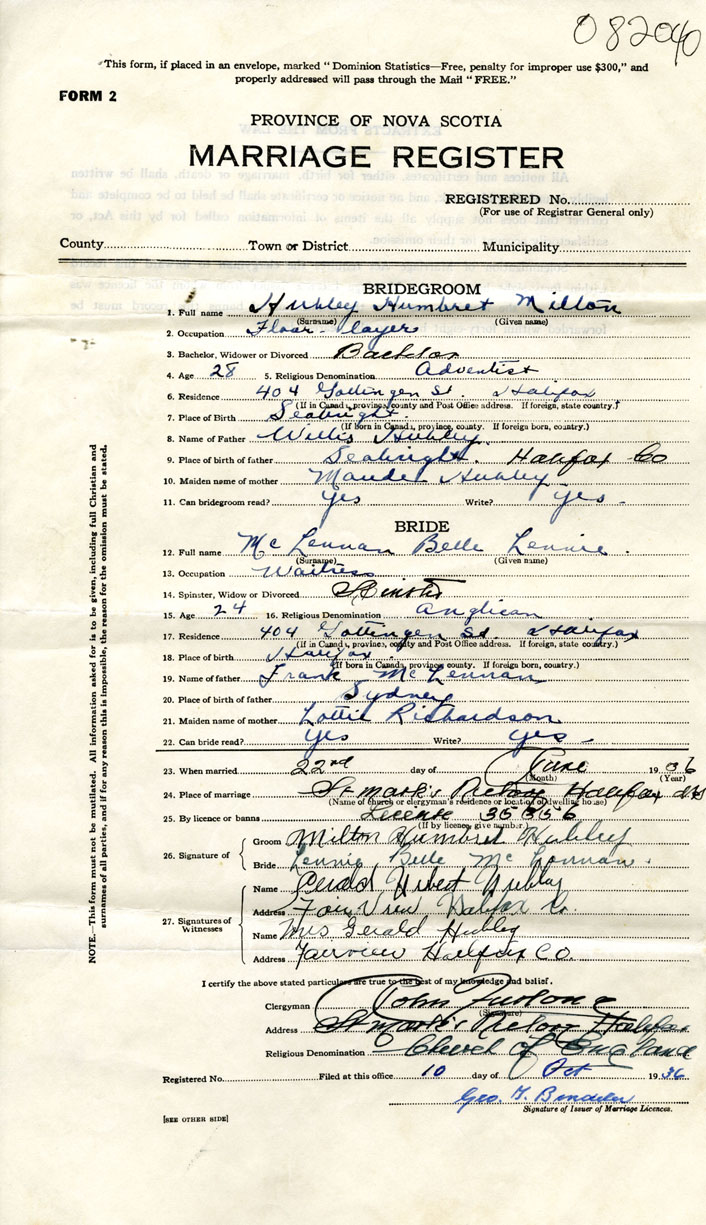 082040
"This form, if placed in an envelope, marked "Dominion Statistics—Free, penalty for improper use $300," and
properly addressed will pass through the Mail "FREE."
FORM 2
PROVINCE OF NOVA SCOTIA
MARRIAGE REGISTER
REGISTERED No.
(For use of Registrar General only)
County Town or District Municipality
BRIDEGROOM
1. Full name Hubley Humbret Milton
(Surname) (Given name)
2. Occupation Floor-layer
3. Bachelor, Widower or Divorced Bachlor
4. Age 28 5. Religious Denomination Adventist
6. Residence 404 Gottingen St. Halifax
(If in Canada, province, county and Post Office address. If foreign, state country.)
7. Place of Birth Seabright.
(If born in Canada, province, county. If foreign born, country.)
8. Name of Father Willis Hubley.
9. Place of birth of father Seabright. Halifax Co
10. Maiden name of mother Maude Hubley
11. Can bridegroom read? Yes Write? Yes -
BRIDE
12. Full name Mc Lennan Belle Lennie.
(Surname) (Given name)
13. Occupation Waitress
14. Spinster, Widow or Divorced Spinster
15. Age 24 16. Religious Denomination Anglican
17. Residence 404 Gottingen St. Halifax
(If in Canada, province, county and Post Office address. If foreign, state country.)
18. Place of birth Halifax.
(If born in Canada, province, county. If foreign born, country.)
19. Name of father Frank McLennan
20. Place of birth of father Sydney
21. Maiden name of mother Lottie Richardson
22. Can bride read? Yes Write? Yes -
23. When married 22nd day of June 1936
(Month) (Year)
24. Place of marriage St mark's Rectory Halifax NS
(Name of church or clergyman's residence or location of dwelling house)
25. By licence or banns License 35356
(If by licence, give number)
26. Signature of Groom Milton Humbret Hubley
Bride Lennie Belle McLennan.
27. Signatures of Witnesses
Name Gerald Hubley
Address Fairview Halifax Co.
Name Mrs Gerald Hubley
Address Fairview Halifax Co.
NOTE.—This form must not be mutilated. All information asked for is to be given, including full Christian and
surnames of all parties, and if for any reason this is impossible, the reason for the omission must be stated.
I certify the above stated particulars are true to the best of my knowledge and belief.
Clergyman John Furlong
(Signature)
Address St mark's Rectory Halifax
Religious Denomination Church of England
Registered No. Filed at this office 10 day of Oct 1936
Geo.
Signature of Issuer of Marriage Licences.
[SEE OTHER SIDE]